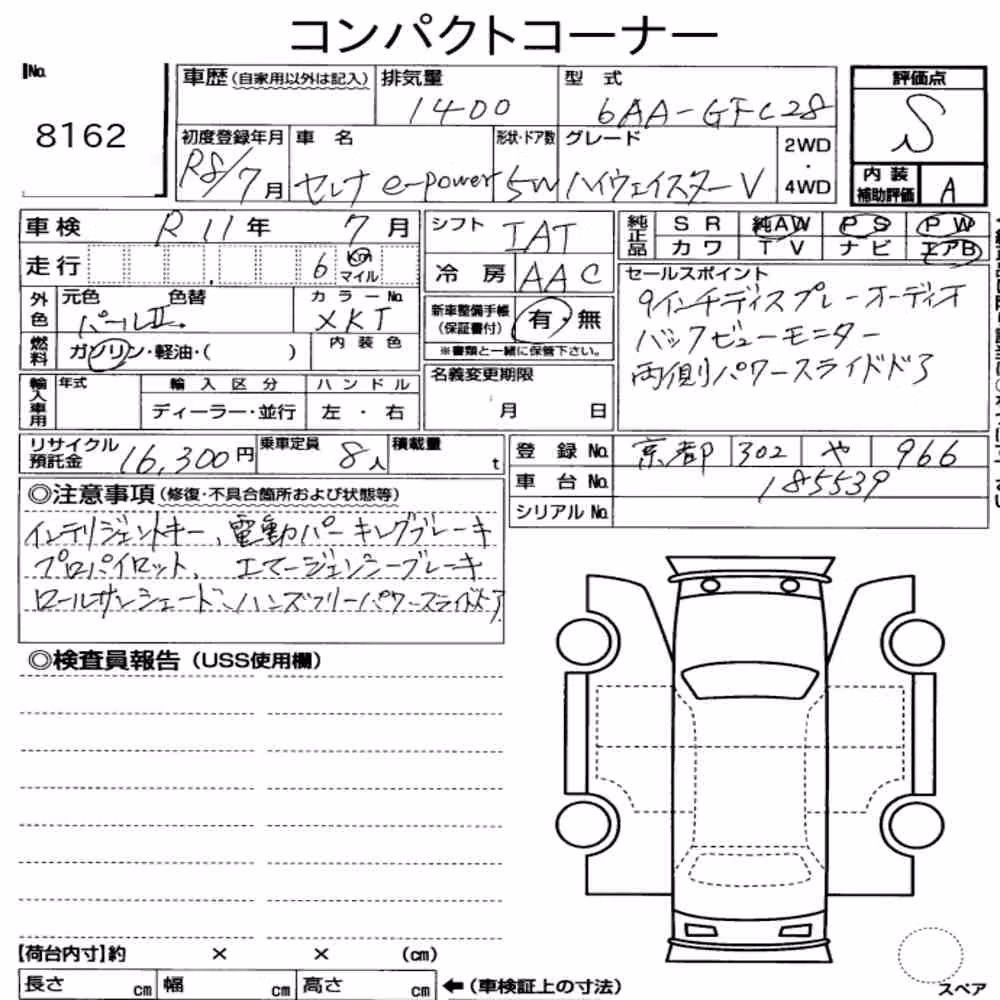 コンパクトコーナー
No.
8162
車歴(自家用以外は記入)
排気量
1400
型 式
6AA-GFC28
評価点
S
初度登録年月
R8/7月
車 名
セレナ e-power
形状・ドア数
5W
グレード
ハイウェイスターV
2WD
・
4WD
内 装
補助評価
A
車検 R11年 7月
シフト IAT
純正品
SR 純AW PS PW
カワ TV ナビ エアB
走行 6 km マイル
冷房 AAC
セールスポイント
9インチディスプレーオーディオ
バックビューモニター
両側パワースライドドア
外色
元色 色替
パールⅡ.
カラーNo.
XKJ
新車整備手帳
(保証書付)
有・無
※書類と一緒に保管下さい。
燃料
ガソリン・軽油・( )
内 装 色
輸入車用
年式
輸 入 区 分
ディーラー・並行
ハ ン ド ル
左 ・ 右
名義変更期限
月 日
リサイクル
預託金
16,300円
乗車定員
8人
積載量
t
登 録 No. 京都 302 や 966
車 台 No. 185539
シリアルNo.
◎注意事項(修復・不具合箇所および状態等)
インテリジェントキー、電動パーキングブレーキ
プロパイロット、エマージェンシーブレーキ
ロールサンシェード、ハンズフリーパワースライドドア
◎検査員報告(USS使用欄)
【荷台内寸】約 × × (cm)
長さ cm 幅 cm 高さ cm ←(車検証上の寸法)
スペア